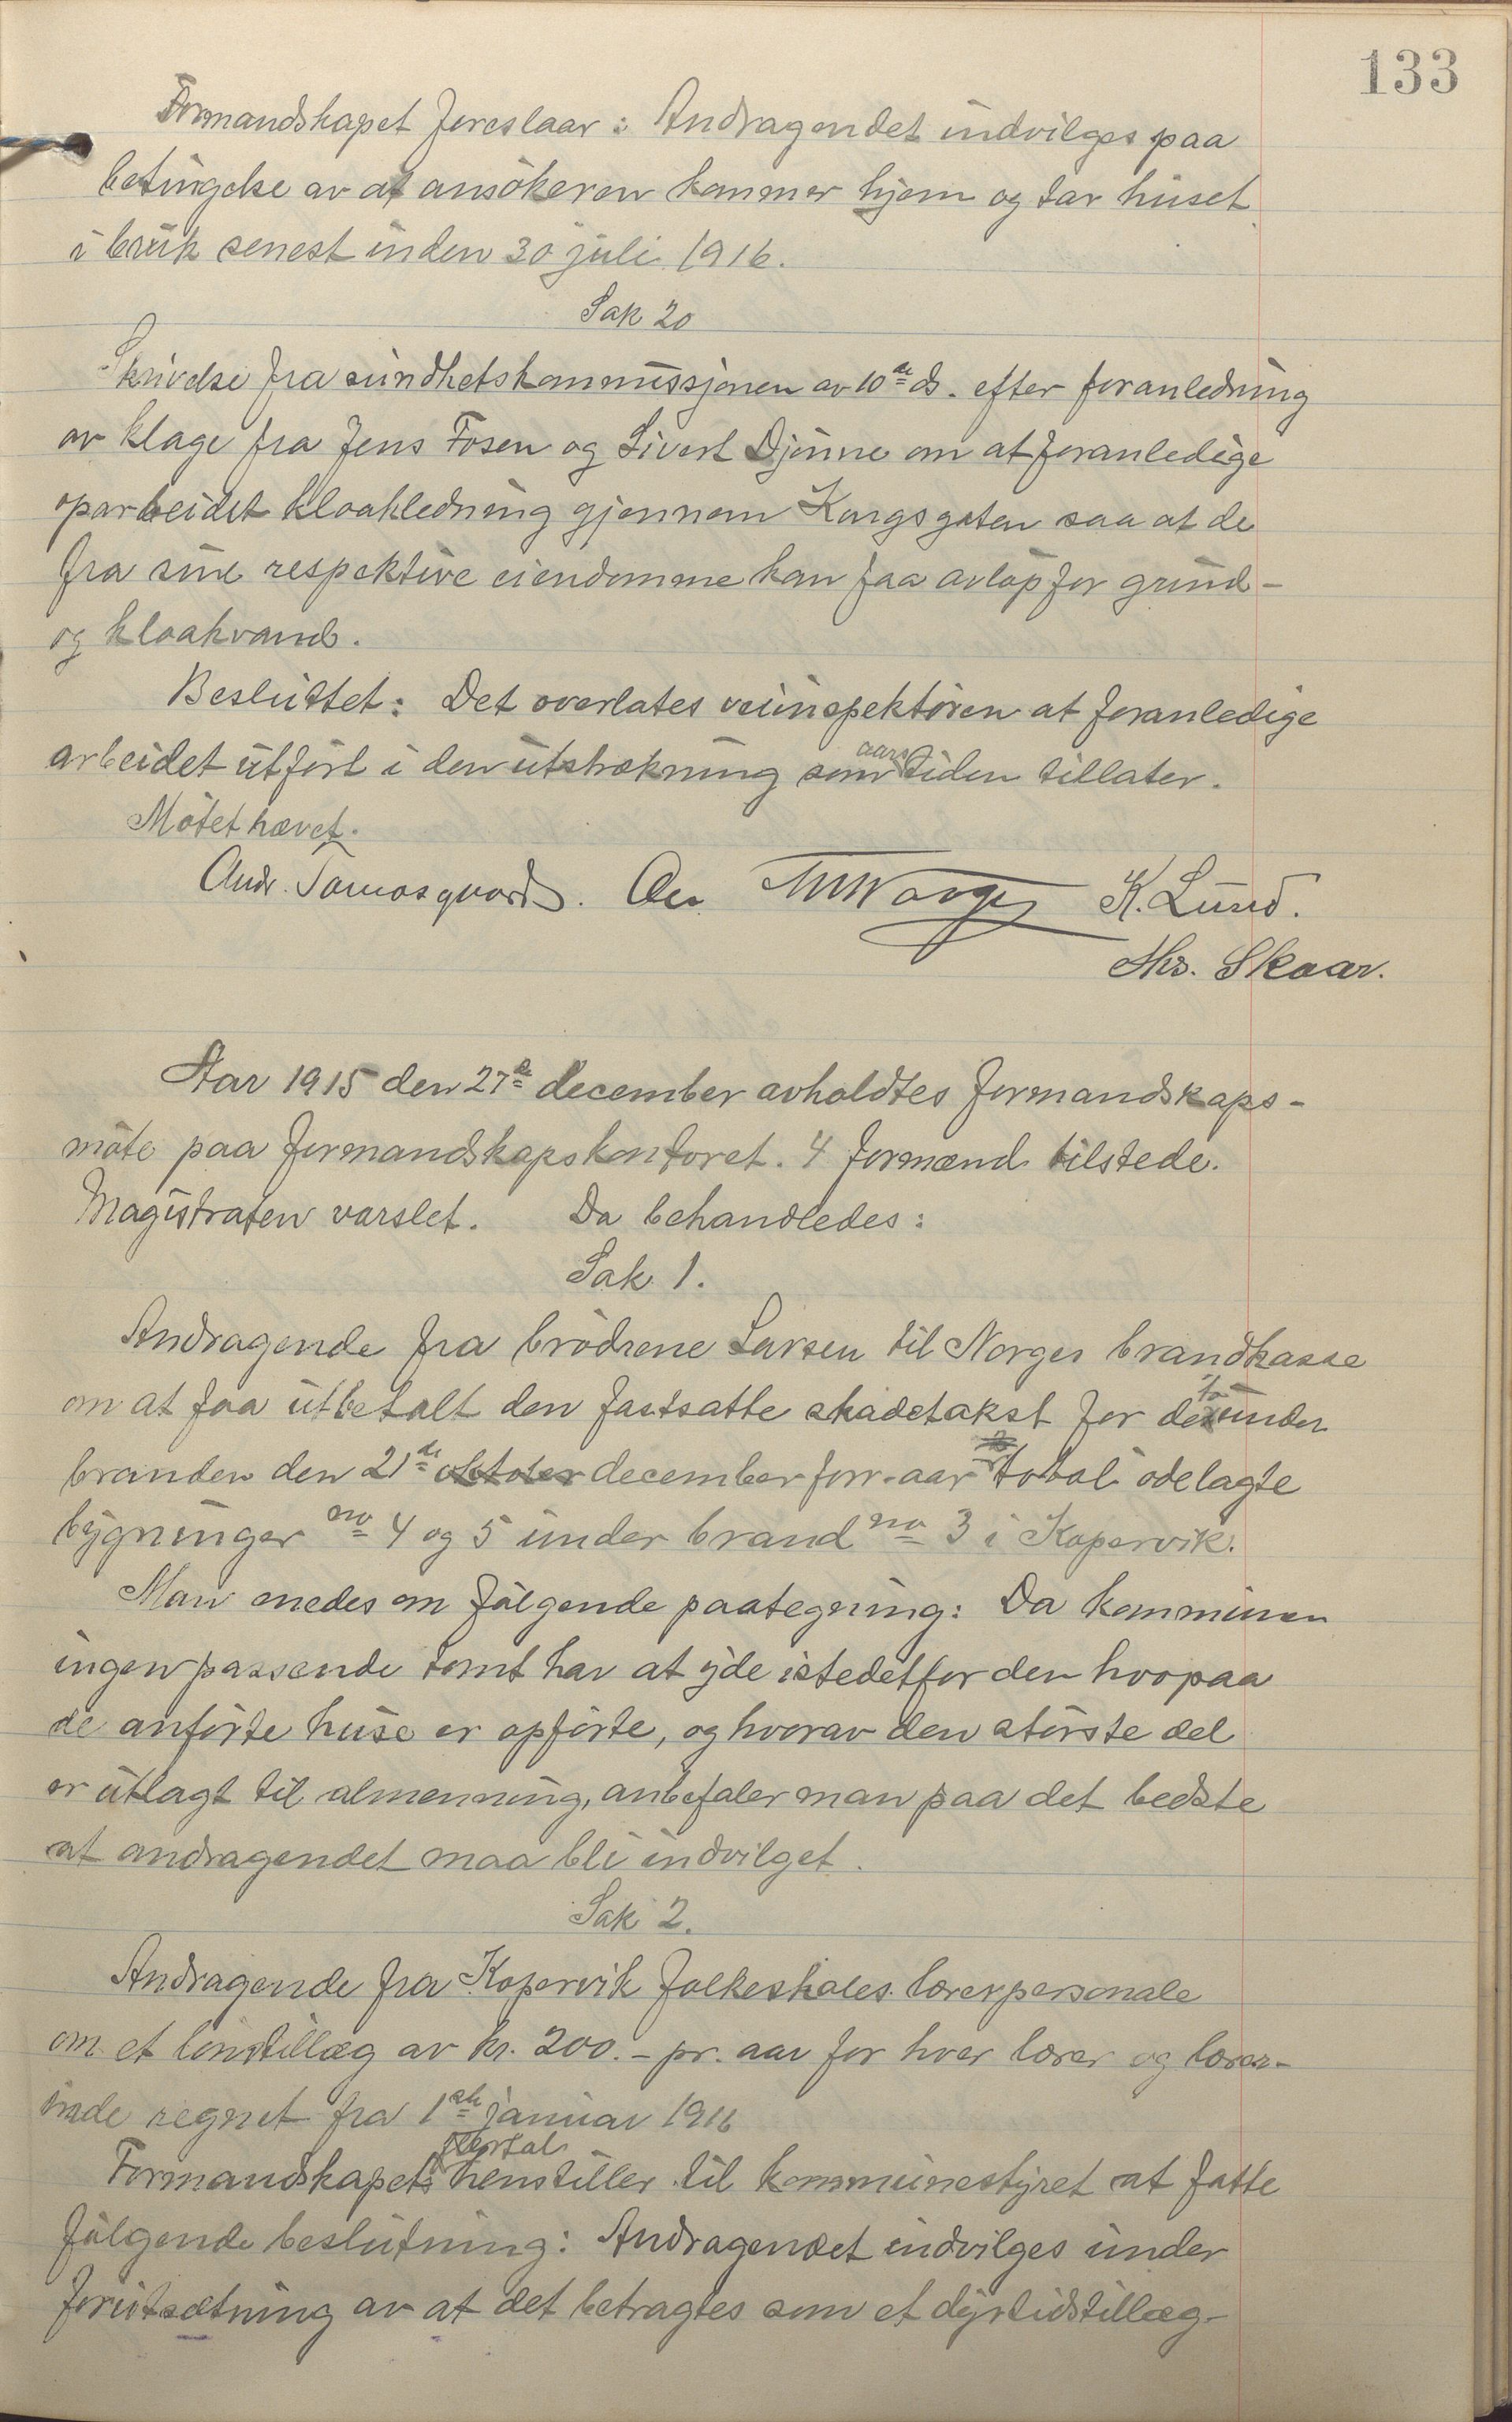 133
Formandskapet foreslaar: Andragendet indvilges paa
betingelse av at ansökeren kommer hjem og tar huset
i bruk senest inden 30 juli 1916.
Sak 20
Skrivelse fra sundhetskommissjonen av 10de ds. efter foranledning
av klage fra Jens Fosen og Sivert Djönne om at foranledige
oparbeidet kloakledning gjennem Kongsgaten saa at de
fra sine respektive eiendomme kan faa avlöp for grund-
og kloakvand.
Besluttet: Det overlates veiinspektören at foranledige
arbeidet utfört i den utstrækning som aarstiden tillater.
Mötet hævet.
Andr. K. Lund.
Chr. Skaar.
Aar 1915 den 27de december avholdtes formandskaps-
möte paa formandskapskontoret. 4 formænd tilstede.
Magistraten varslet. Da behandledes:
Sak 1.
Andragende fra brödrene Larsen til Norges brandkasse
om at faa utbetalt den fastsatte skadetakst for de to under
branden den 21de oktober december forr. aar total ödelagte
bygninger no 4 og 5 under brand no 3 i Kopervik.
Man enedes om fölgende paategning: Da kommunen
ingen passende tomt har at yde istedetfor den hvorpaa
de anförte huse er opförte, og hvorav den störste del
er utlagt til almenning, anbefaler man paa det bedste
at andragendet maa bli indvilget.
Sak 2.
Andragende fra Kopervik folkeskoles lærerpersonale
om et lönstillæg av kr. 200.- pr. aar for hver lærer og lærer-
inde regnet fra 1ste januar 1916
Formandskapets flertal henstiller til kommunestyret at fatte
fölgende beslutning: Andragendet indvilges under
forutsætning av at det betragtes som et dyrtidstillæg-